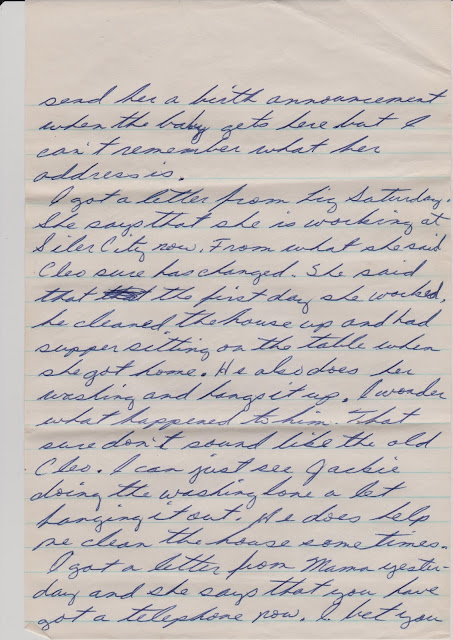 send her a birth announcement
when the baby gets here but I
can't remember what her
address is.
I got a letter from Liz Saturday.
She says that she is working at
Siler City now. From what she said
Cleo sure has changed. She said
that the first day she worked,
he cleaned the house up and had
supper sitting on the table when
she got home. He also does her
washing and hangs it up. I wonder
what happened to him. That
sure don't sound like the old
Cleo. I can just see Jackie
doing the washing lone a let
hanging it out. He does help
me clean the house sometimes.
I got a letter from Mama yester-
day and she says that you have
got a telephone now. I bet you